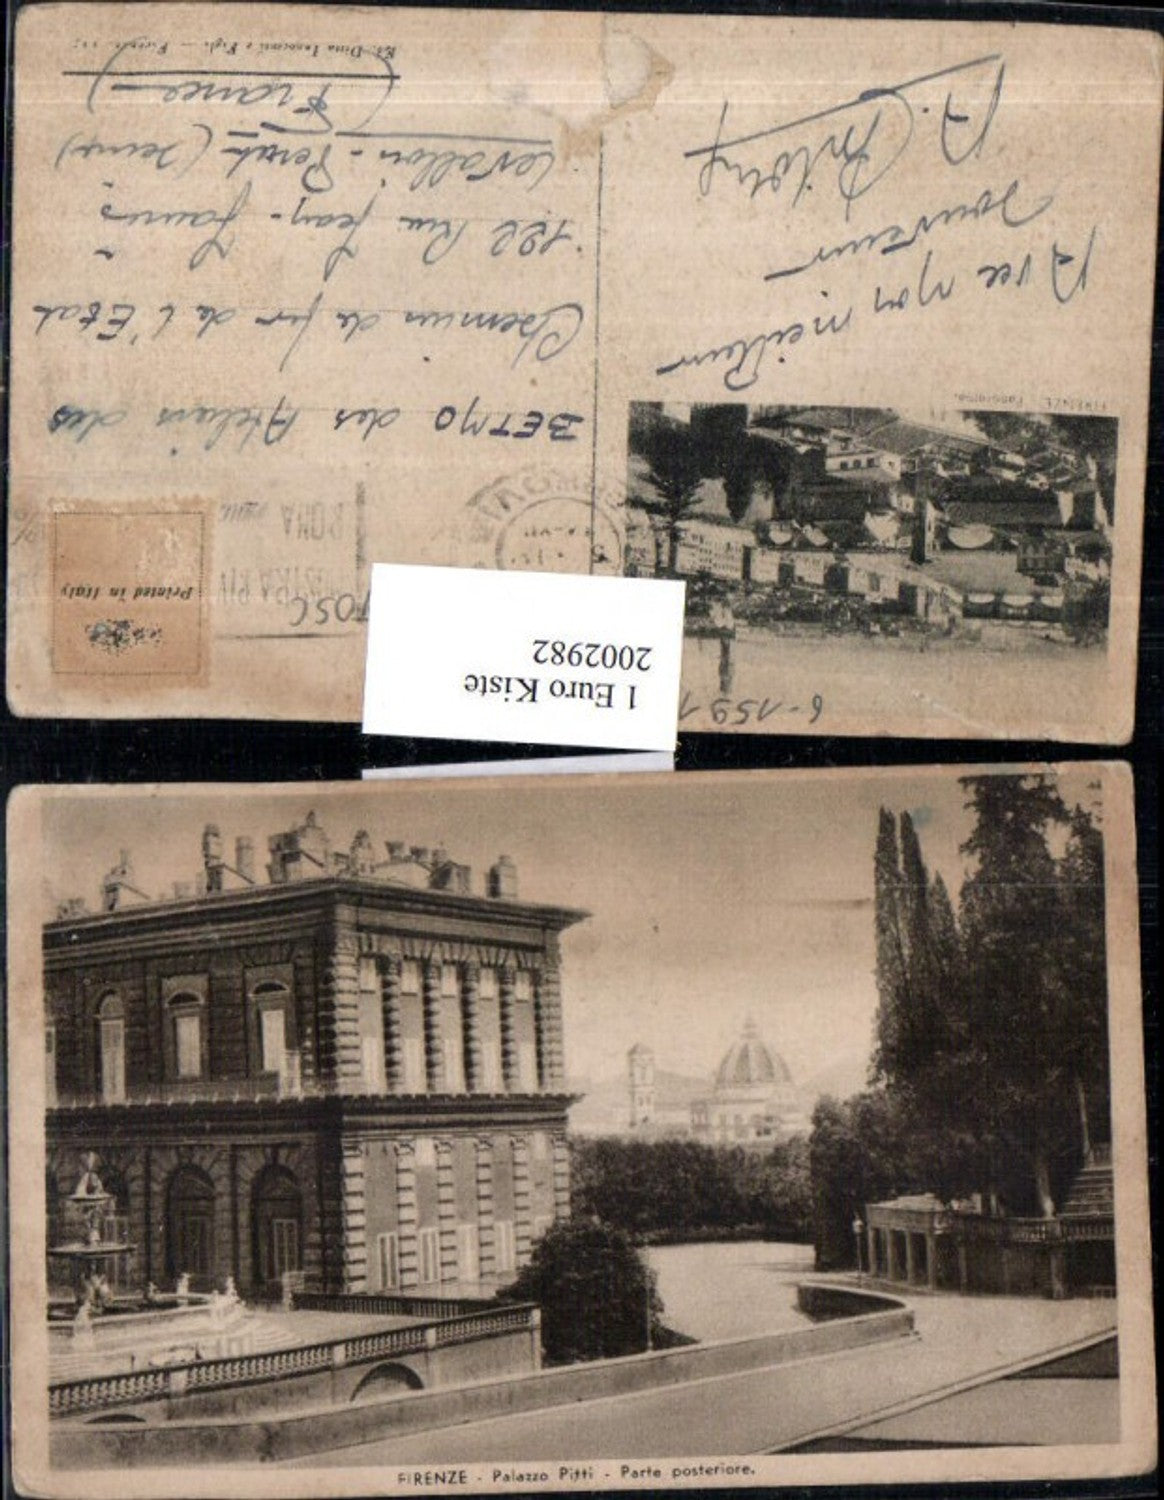 1 Euro Kiste
2002982
6-1591
FIRENZE. Panorama.
Avec mon meilleur
souvenir
Printed in Italy
TOSC
ROMA
BETMO des Ateliers des
Chemin de fer de l'Etat
122 Rue Jean-Jaurès
Levallois-Perret (Seine)
(France)
Ed. Dino Innocenti e Figli — Firenze
FIRENZE - Palazzo Pitti - Parte posteriore.